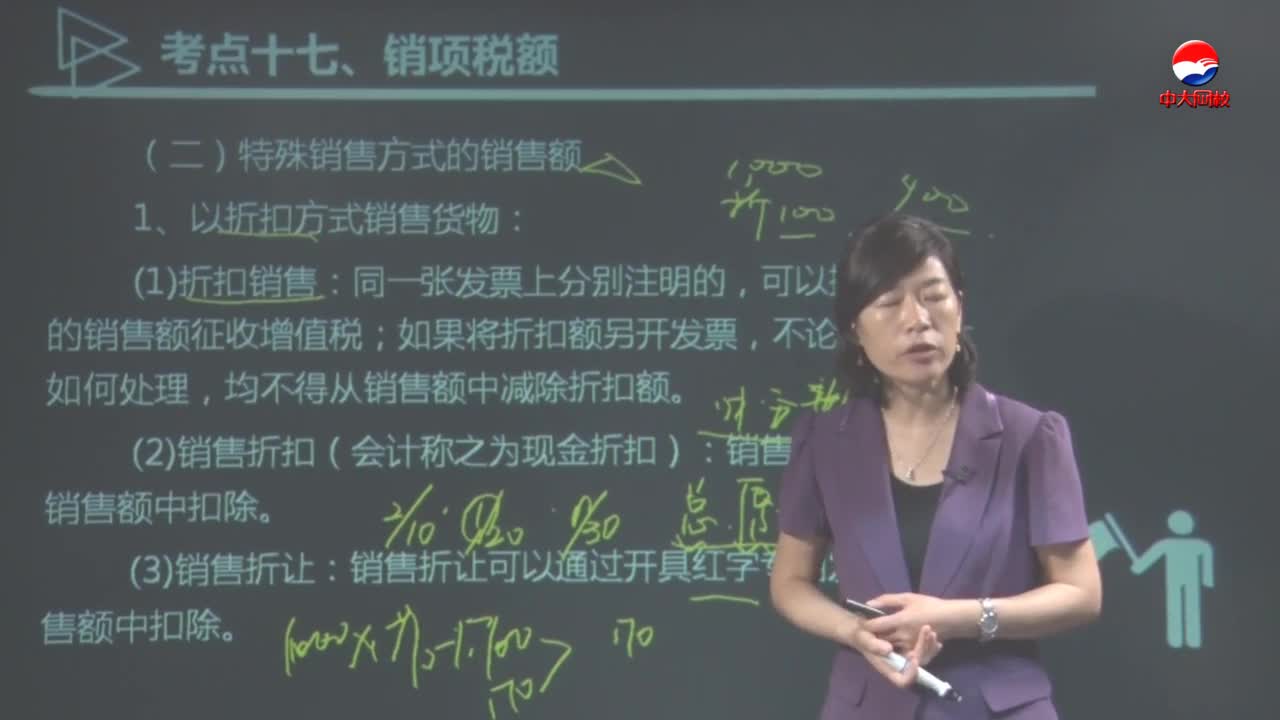 考点十七、销项税额
中大网校
（二）特殊销售方式的销售额
1,000
折100
900
1、以折扣方式销售货物：
(1)折扣销售：同一张发票上分别注明的，可以
的销售额征收增值税；如果将折扣额另开发票，不论
如何处理，均不得从销售额中减除折扣额。
(2)销售折扣（会计称之为现金折扣）：销售
销售额中扣除。
2/10
1/20
n/30
总
(3)销售折让：销售折让可以通过开具红字
售额中扣除。
170
170